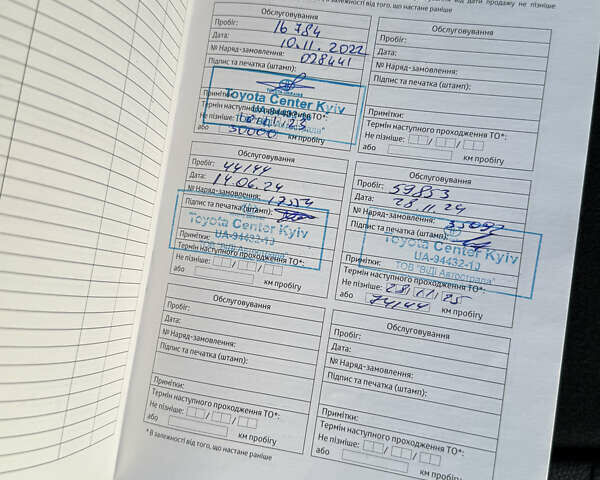 залежності від того, що настане раніше
від дати продажу не пізніше
Обслуговування
Пробіг: 16 784
Дата: 10.11.2022
№ Наряд-замовлення: 028441
Підпис та печатка (штамп):
Toyota Center Kyiv
UA-94432-10
Примітки:
Термін наступного проходження ТО*:
Не пізніше:
або 30000 км пробігу
Обслуговування
Пробіг:
Дата:
№ Наряд-замовлення:
Підпис та печатка (штамп):
Примітки:
Термін наступного проходження ТО*:
Не пізніше: / /
або км пробігу
Обслуговування
Пробіг: 44144
Дата: 14.06.24
№ Наряд-замовлення:
Підпис та печатка (штамп):
Toyota Center Kyiv
UA-94432-10
ТОВ "ВІДІ Автострада"
Примітки:
Термін наступного проходження ТО*:
Не пізніше: / /
або км пробігу
Обслуговування
Пробіг: 59853
Дата: 28.11.24
№ Наряд-замовлення:
Підпис та печатка (штамп):
Toyota Center Kyiv
UA-94432-10
ТОВ "ВІДІ Автострада"
Примітки:
Термін наступного проходження ТО*:
Не пізніше: 28/11/25
або 74144 км пробігу
Обслуговування
Пробіг:
Дата:
№ Наряд-замовлення:
Підпис та печатка (штамп):
Примітки:
Термін наступного проходження ТО*:
Не пізніше: / /
або км пробігу
Обслуговування
Пробіг:
Дата:
№ Наряд-замовлення:
Підпис та печатка (штамп):
Примітки:
Термін наступного проходження ТО*:
Не пізніше: / /
або км пробігу
* В залежності від того, що настане раніше